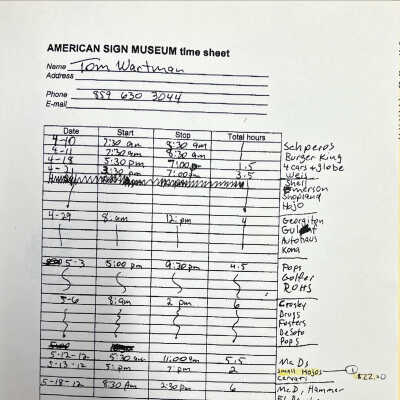 AMERICAN SIGN MUSEUM time sheet
Name Tom Wartman
Address
Phone 859 630 3044
E-mail
Date Start Stop Total hours
4-10 7:30 am 8:30 am 1 Schperos
4-11 7:30 am 8:30 am 1 Burger King
4-18 5:30 pm 7:00 pm 1.5 4 cars & globe
4-21 3:30 pm 7:00 pm 3.5 Weis
Shell
Emerson
Shopland
HoJo
4-29 8:am 12:pm 4 Georgiton
Autohaus
Kona
5-3 5:00 pm 9:30 pm 4.5 Pops
Golfer
ROHS
5-6 8:am 2 pm 6 Crosby
Drugs
Fosters
DeSoto
Pops
5-12-12 5:30 am 11:00 am 5.5 McDs
5-13-12 5:pm 7:pm 2 small Hojos 1 $22.20
Carvats
5-18-12 8:30 Am 2:30 pm 6 McD, Hammer